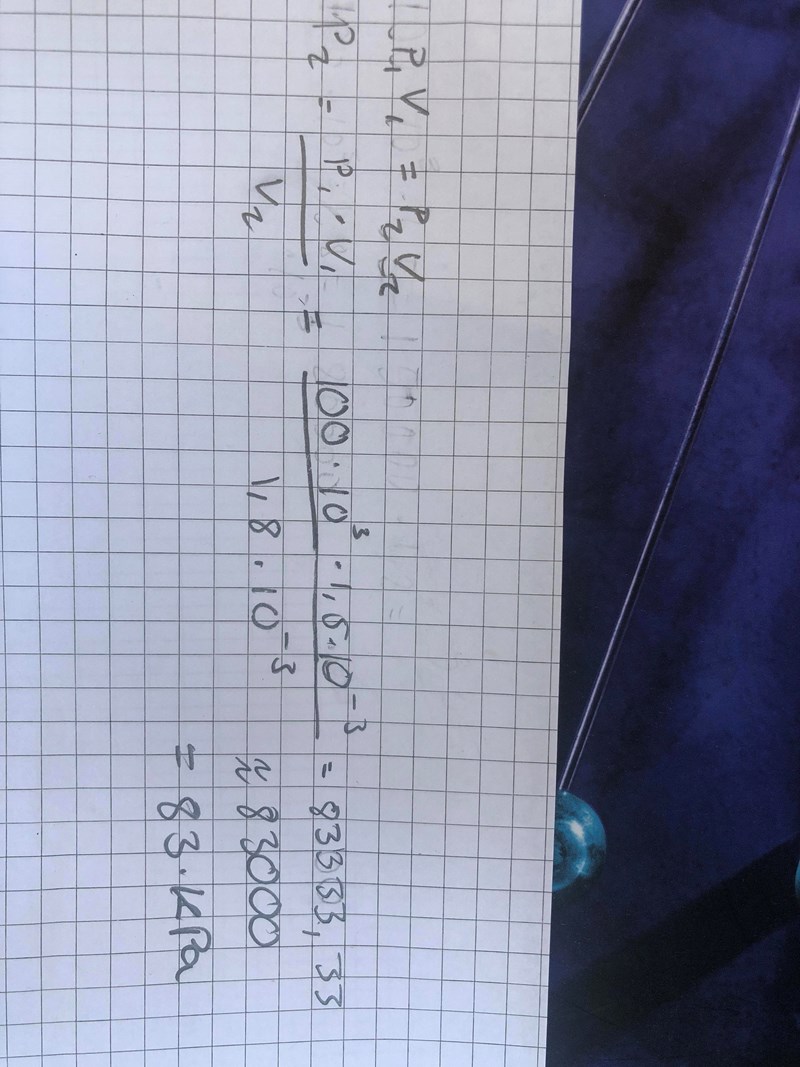 P₁V₁ = P₂V₂
P₂ = P₁ · V₁ / V₂ = 100 · 10³ · 1,5 · 10⁻³ / 1,8 · 10⁻³ = 83333,33
≈ 83000
= 83 · kPa